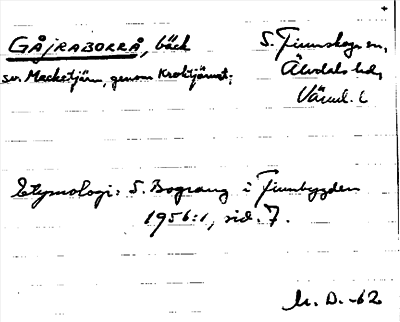 GÅJRABORRÅ, bäck
S. Finnskoga sn,
sv. Mackstjärn, genom Kroktjärnet;
Älvdals hd,
Värml. l
Etymologi: S. Bograng i Finnbygden
1956:1, sid. 7.
M. D. -62